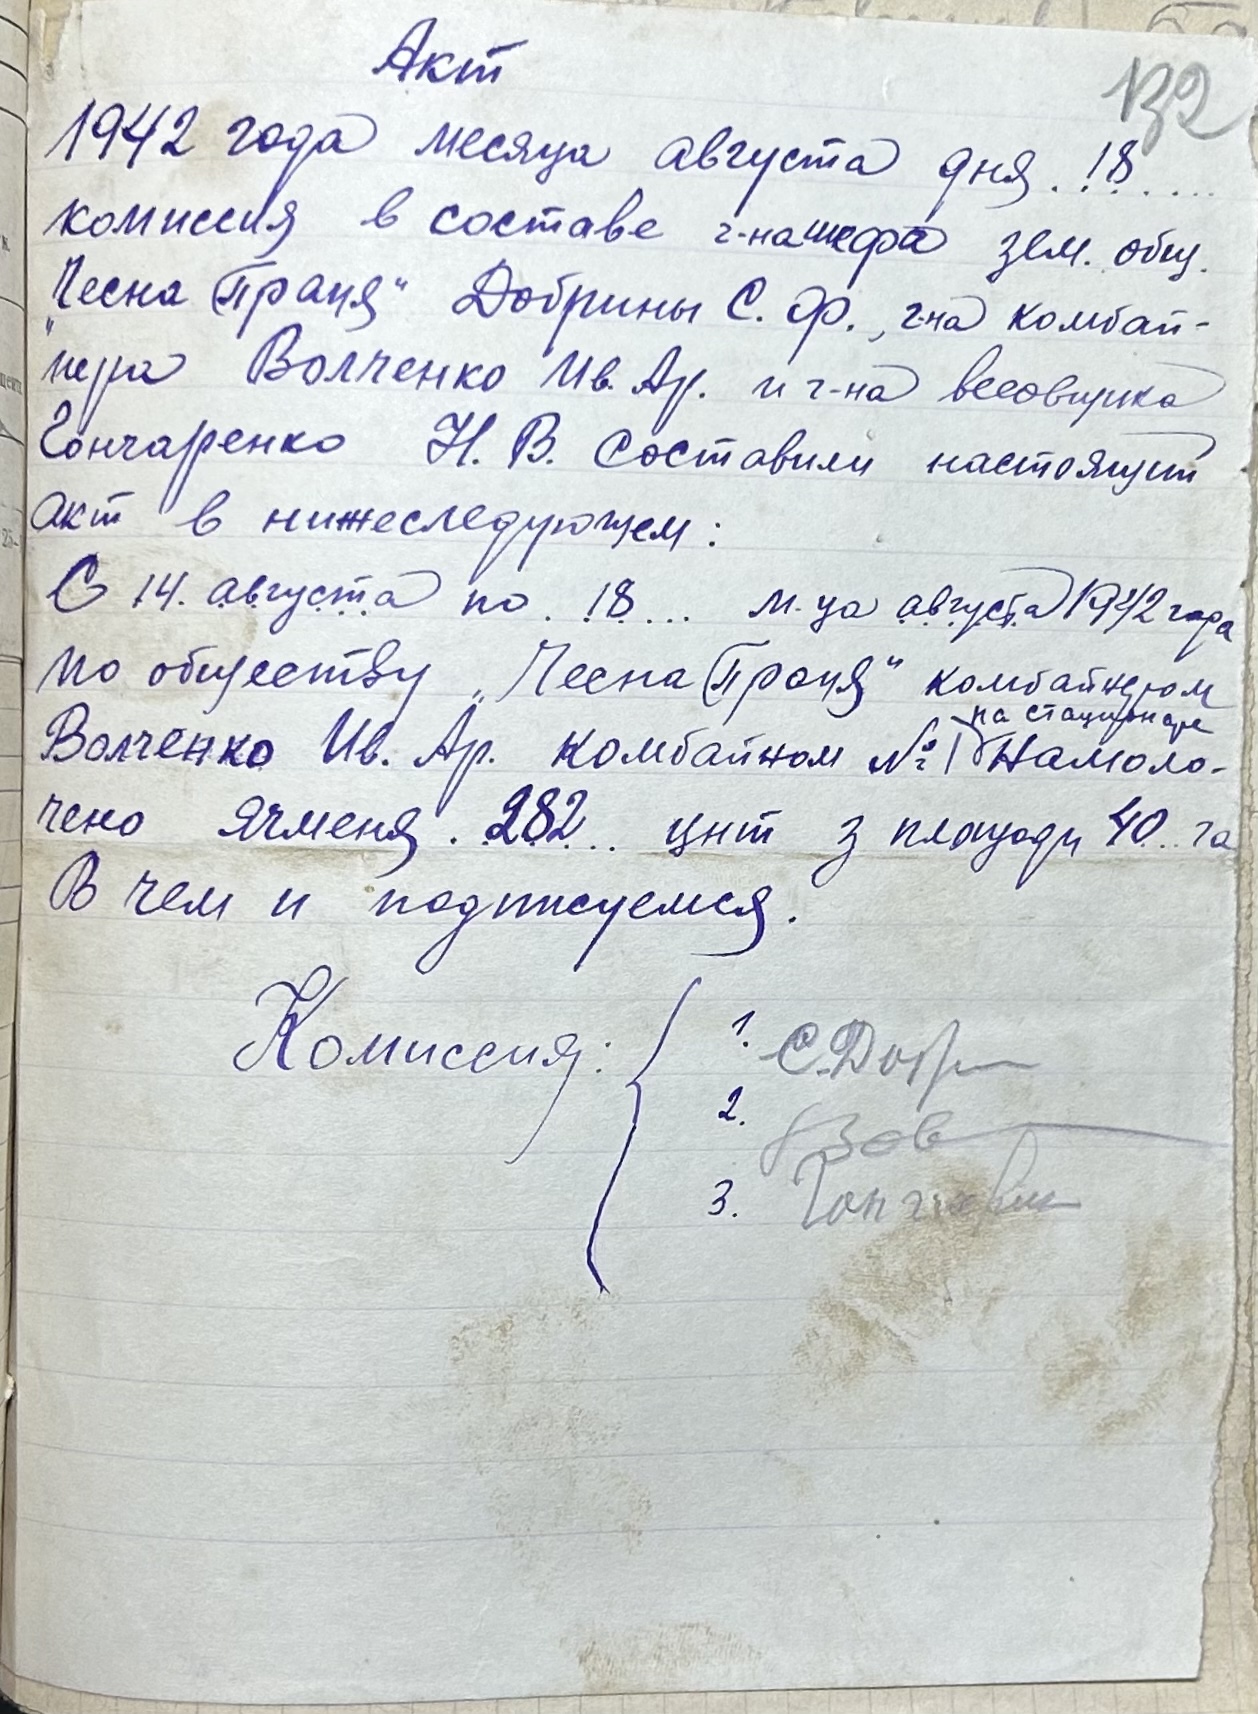 132
Акт
1942 года месяца августа дня 18
комиссия в составе г-на шефа зем. общ.
"Чесна Праця" Добрины С. Ф., г-на комбай-
нера Волченко Ив. Ар. и г-на весовщика
Гончаренко Н. В. составили настоящий
акт в нижеследующем:
С 14. августа по 18 м-ца августа 1942 года
по обществу "Чесна Праця" комбайнером
на стационаре
Волченко Ив. Ар. комбайном № 1 Намоло-
чено ячменя 282 цнт з площади 40 га
В чем и подписуемся.
Комиссия:
1. С. Добр
2.
3.